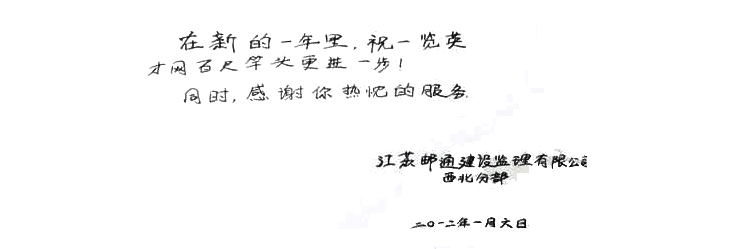 在新的一年里,祝一览英
才网百尺竿头更进一步!
同时,感谢你热忱的服务.
江苏邮通建设监理有限公司
西北分部
二〇一二年一月六日